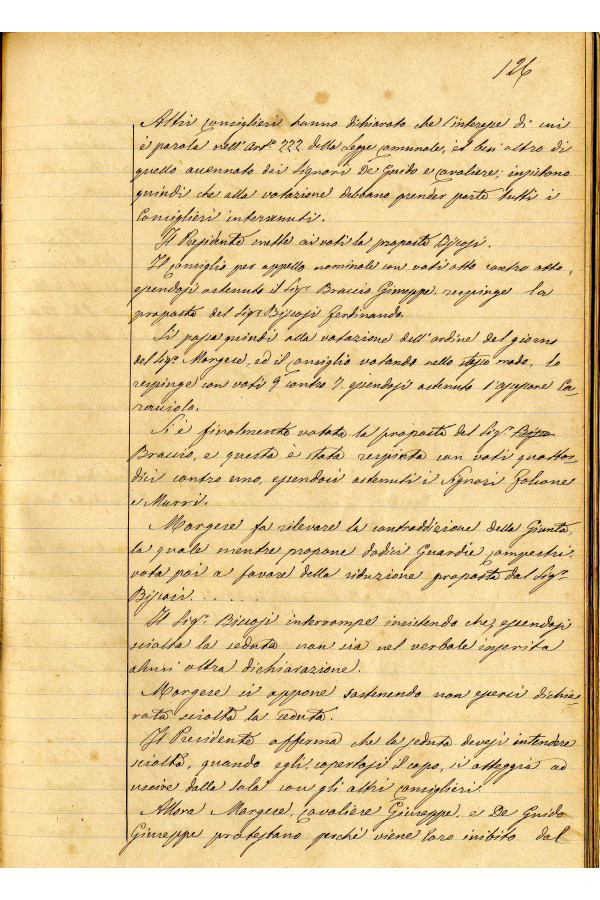 126
Altri Consiglieri hanno dichiarato che l'interesse di cui
è parola nell'Art.º 222 della Legge Comunale, è ben altro di
quello accennato dai Signori De Guido e Cavaliere; insistono
quindi che alla votazione debbano prender parte tutti i
Consiglieri intervenuti.
Il Presidente mette ai voti la proposta Biscosi.
Il Consiglio per appello nominale con voti otto contro otto,
essendosi astenuto il Sigr. Braccio Giuseppe respinge la
proposta del Sigr. Biscosi Ferdinando.
Si passa quindi alla votazione dell'ordine del giorno
del Sigr. Morgese, ed il Consiglio votando nello stesso modo, lo
respinge con voti 9 contro 7 essendosi astenuto l'assessore Ca-
racciolo.
Si è finalmente votata la proposta del Sigr.
Braccio, e questa è stata respinta con voti quattor-
dici contro uno, essendosi astenuti i Signori Falcone
e Murri.
Morgese fa rilevare la contraddizione della Giunta,
la quale mentre propone dodici Guardie campestri
vota poi a favore della riduzione proposta dal Sigr.
Biscosi.......
Il Sigr. Biscosi interrompe insistendo che, essendosi
sciolta la seduta, non sia nel verbale inserita
alcun'altra dichiarazione.
Morgese si oppone sostenendo non essersi dichia-
rata sciolta la seduta.
Il Presidente afferma che la seduta devesi intendere
sciolta, quando egli, copertosi il capo, si atteggia ad
uscire dalla sala con gli altri consiglieri.
Allora Morgese, Cavaliere Giuseppe, e De Guido
Giuseppe protestano perché viene loro inibito dal